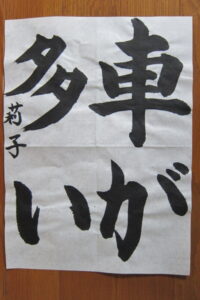 車が
多い
莉子